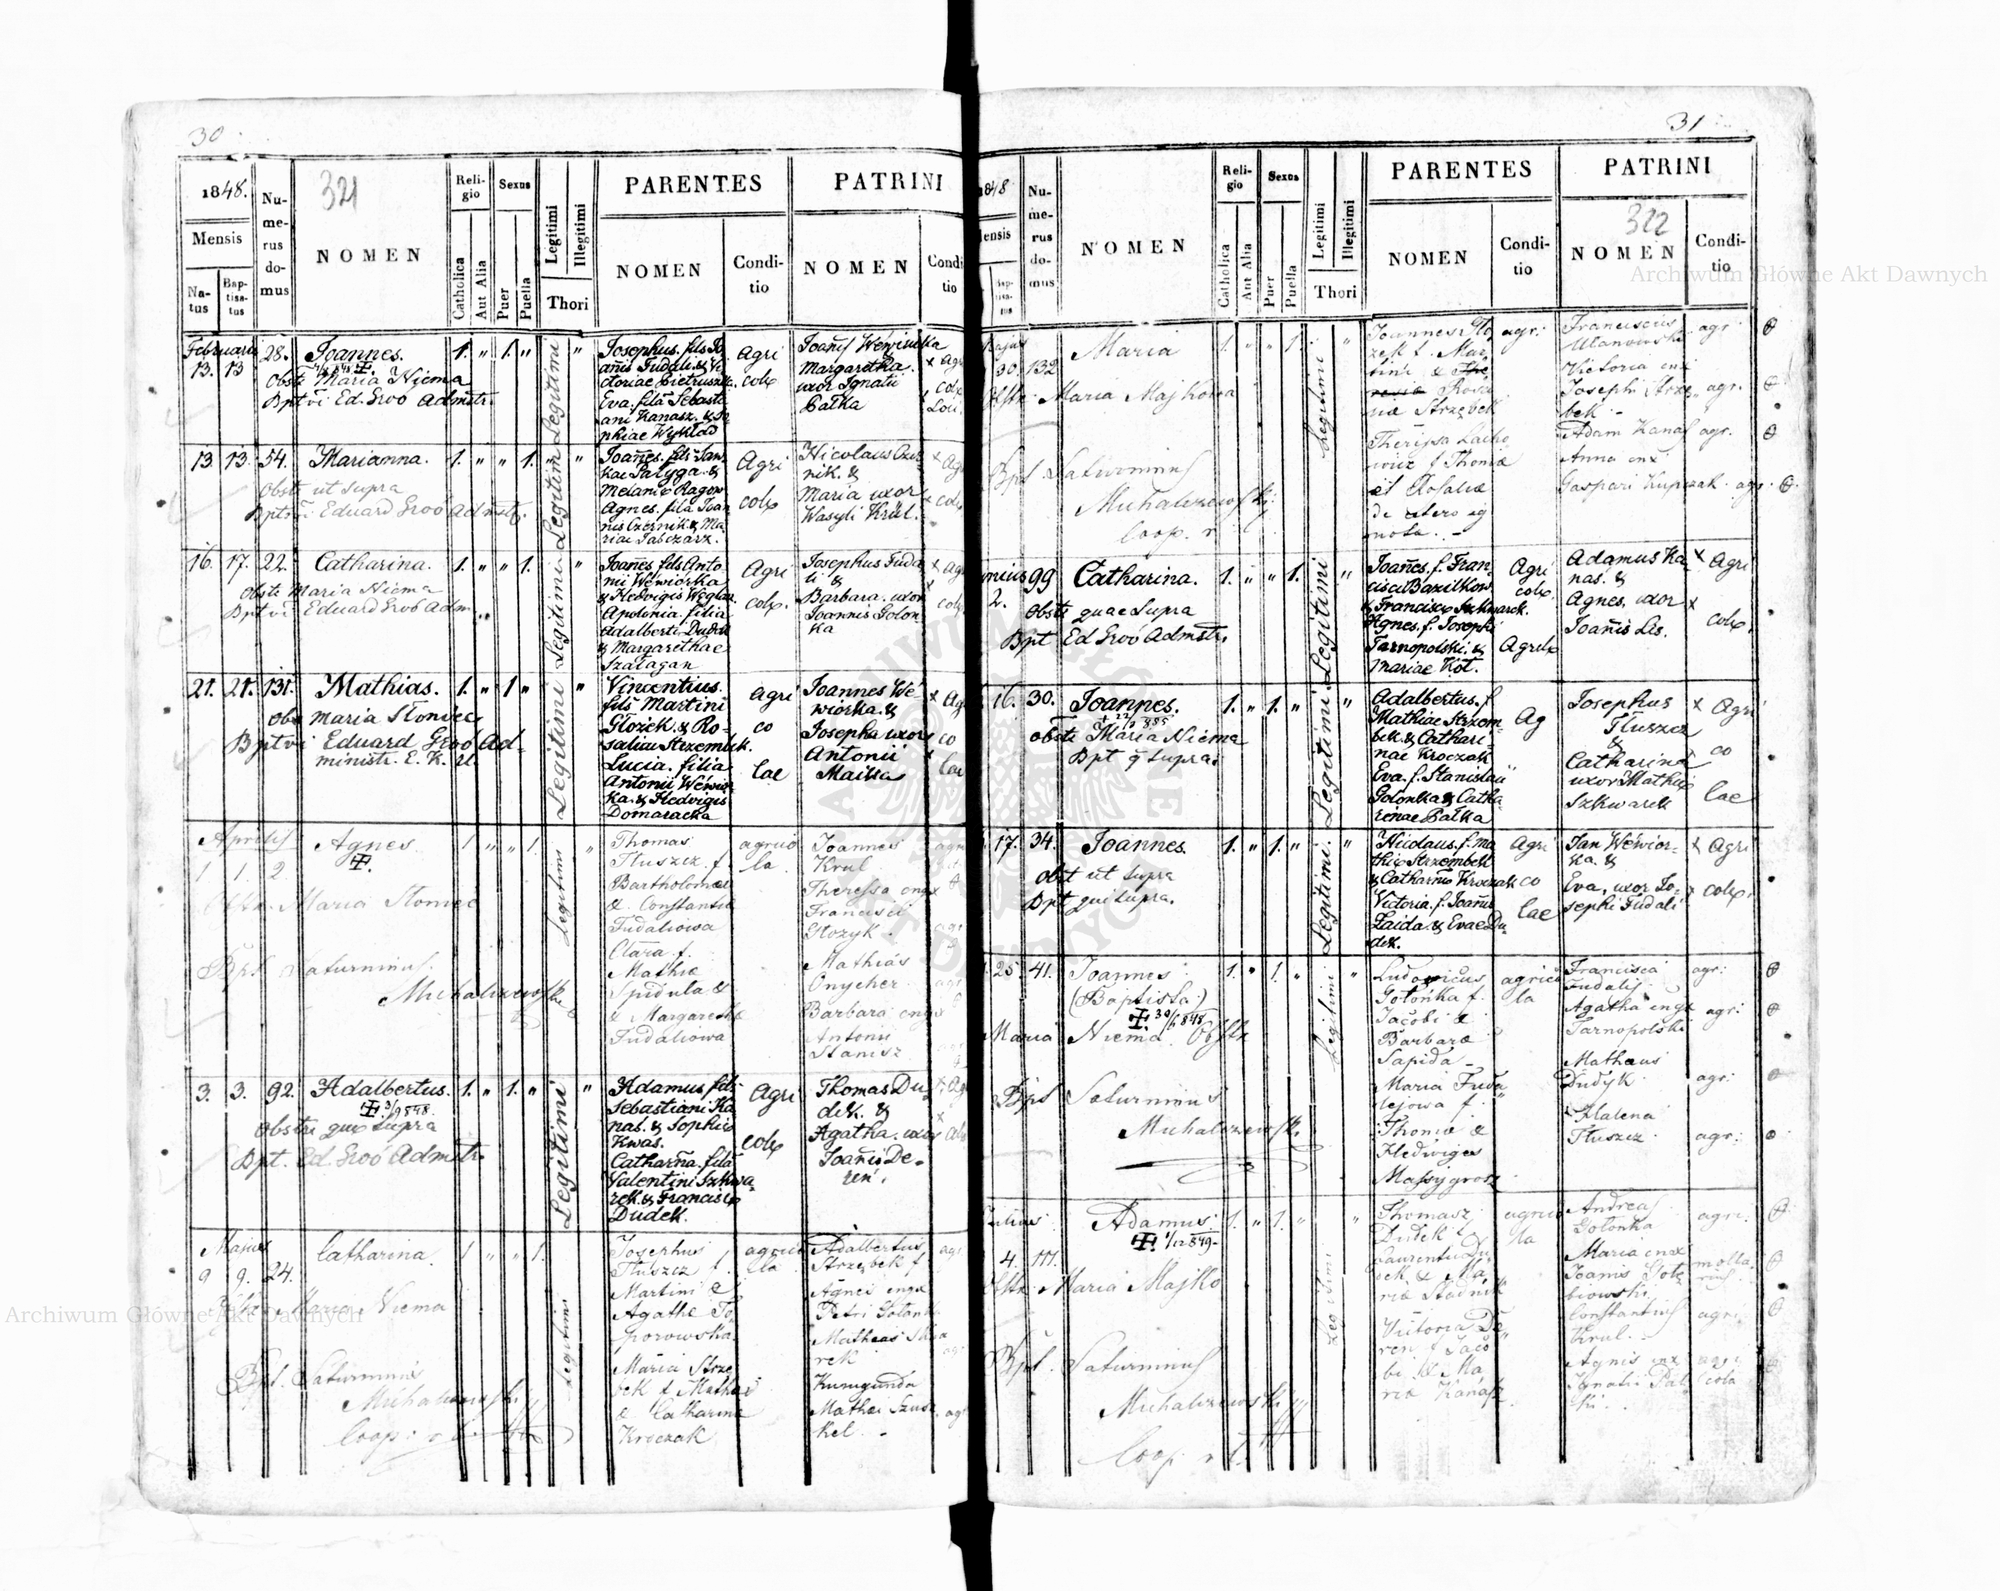 30
321
1848.
Mensis
Natus
Baptisatus
Numerus domus
NOMEN
Religio
Catholica
Aut Alia
Sexus
Puer
Puella
Legitimi
Illegitimi
Thori
PARENTES
NOMEN
Conditio
PATRINI
NOMEN
Conditio
Februarii
13. 13 28. Joannes. 1. " 1. " Legitimi "
Obste Maria Niema
Bptvi Ed. Groó Admstr.
Josephus. fils Jo
anis Fudali. & Vi
ctoriae Pietruszka.
Eva. filia Sebasti
ani Kanasz. & So
phiae Wykład
Agri
colae
Joannes Wewiurka
Margaretha
uxor Ignatii
Bałka
13 13. 54. Marianna. 1. " " 1. Legitimi
Obste ut supra
Bptvi Eduard Groó Admstr.
Joannes. fils Jan
kae Pałyga. &
Melaniae Ragow
Agnes. filia Joan
nis Czernik. & Ma
riae Tabczarz.
Agri
colae
Nicolaus
nik. &
Maria uxor
Wasyli Król.
16. 17. 22. Catharina. 1. " " 1. Legitimi
Obste Maria Niema
Bptvi Eduard Groó Adm.
Joannes fils Anto
nii Wewiorka
& Hedvigis
Apolonia. filia
Adalberti Dudek
& Margarethae
Szałagan
Agri
colae.
Josephus Fuda
li &
Barbara. uxor
Joannis Golon
ka
21. 21. 131. Mathias. 1. " 1 " Legitimi "
Obs Maria Słoniec
Bptvi Eduard Groó Ad-
ministr. E. K. rl.
Vincentius.
fils Martini
Głozek. & Ro-
saliae Strzembek.
Lucia. filia
Antonii Wewior
ka. & Hedvigis
Domaracka
Agri
co
lae
Joannes We
wiorka. &
Josepha uxor
Antonii
Maitra
Aprilis
1 1. 2. Agnes. 1 " " 1. Legitimi "
Obstr. Maria Słoniec
Bpt. Saturninus
Michalczewski
Thomas
Tłuszcz f.
Bartholomaei
& Constantia
Fudaliowa
Clara f.
Mathiae
Spidula &
& Margaretha
Fudaliowa
agrico
la
Joannes
Krul
Theressa enxa
Francisci
Głozyk.
Mathias
Onycher
Barbara enxa
Antonii
Stanisz
3. 3. 92. Adalbertus. 1. " 1. " Legitimi "
3/9 848.
Obstri quae supra
Bpt. Ed. Groó Admstr.
Adamus fils
Sebastiani Ka
nas. & Sophiae
Kwas.
Catharina. filia
Valentini Szkwa
rek. & Franciscae
Dudek.
Agri
colae
Thomas Du
dek. &
Agatha. uxor
Joannis De-
ren.
Majus
9 9. 24. Catharina. 1 " " 1. Legitimi
Obstr. Maria Niema
Bpt. Saturninus
Michalczewski
Coop.
Josephus
Tłuszcz f.
Martini &
Agathe To
porowska
Maria Strze
bek f. Mathei
& Catharina
Kroczak
agrico
la
Adalbertus
Strzębek f.
Agnes enxa
Petri Golonk
Matheus
rek
Kunigunda
Mathei
kel. -
31
322
1848
Mensis
Baptisatus
Numerus domus
NOMEN
Religio
Catholica
Aut Alia
Sexus
Puer
Puella
Legitimi
Illegitimi
Thori
PARENTES
NOMEN
Conditio
PATRINI
NOMEN
Conditio
Majus
30. 132 Maria 1. " " 1. Legitimi "
Obstr. Maria Majkowa
Bpt Saturninus
Michalczewski
Coop. r
Joannes Gło
zek f. Mar
tini & The
Rosa
liae Strzębek
Theressa Lacho
wicz f Thomae
et Rosaliae
de utero ig
nota. -
agr:
Franciscus
Ulanowski
Victoria enx
Josephi Strze
bek -
Adam Kanas
Anna enx
Gaspari Kupczak
agr
agr.
agr.
agr.
Junius 99 Catharina. 1. " " 1. Legitimi "
2.
Obste quae supra
Bpt Ed Groó Admstr.
Joannes. f. Fran-
cisci Bazilkow
& Franciscae Szkwarek.
Agnes. f. Josephi
Tarnopolski. &
Mariae Kot.
Agri
colae.
Agricolae
Adamus Ka
nas. &
Agnes. uxor
Joannis Lis.
Agri
colae.
16. 30. Joannes. 1. " 1. " Legitimi "
obste Maria Niema
Bpt q supra.
Adalbertus. f.
Mathiae Strzem-
bek. & Cathari-
nae Kroczak
Eva. f. Stanislai
Golonka & Catha-
renae Bałka
Ag
Josephus
Tłuszcz
&
Catharina
uxor Mathiae
Szkwarek
Agri
co
lae
17. 34. Joannes. 1. " 1. " Legitimi. "
Obst ut supra
Bpt qui supra.
Nicolaus. f. Ma
thiae Strzembek
& Catharinae Kroczak
Victoria. f. Joannis
Zaida. & Evae Du-
dek.
Agri
co
lae
Jan Wewior-
ka. &
Eva. uxor Jo-
sephi Fudali
Agri
colae.
25 41. Joannes 1. " 1. " Legitimi "
(Baptista.)
30/6 848
Maria Niema Obstr
Bpt Saturninus
Michalczewski
Ludovicus
Gołonka f.
Jacobi &
Barbarae
Sapida -
Maria Fuda
lejowa f.
Thomae &
Hedwiges
Massygrosz
agrico
la
Francisca
Fudali
Agatha enxa
Tarnopolski
Mathaeus
Dudyk
Halena
Tłuszcz
agr:
agr:
agr:
agr:
Julius
4. 111. Adamus. 1. " 1. " Legitimi "
1/12 849-
Obstr Maria Majko
Bpt. Saturninus
Michalczewski
Coop. r
Thomasz
Dudek f.
Laurentii Du
dek & Ma
riae Stadnik
Victoria De
ren f Jaco
bi & Ma
riae Kanasz
agrico
la
Andreas
Gołonka
Maria enxa
Joanis
Constantius
Krul.
Agnes enx
Ignatii Pal
ki.
agri.
agri.
Archiwum Główne Akt Dawnych
Archiwum Główne Akt Dawnych